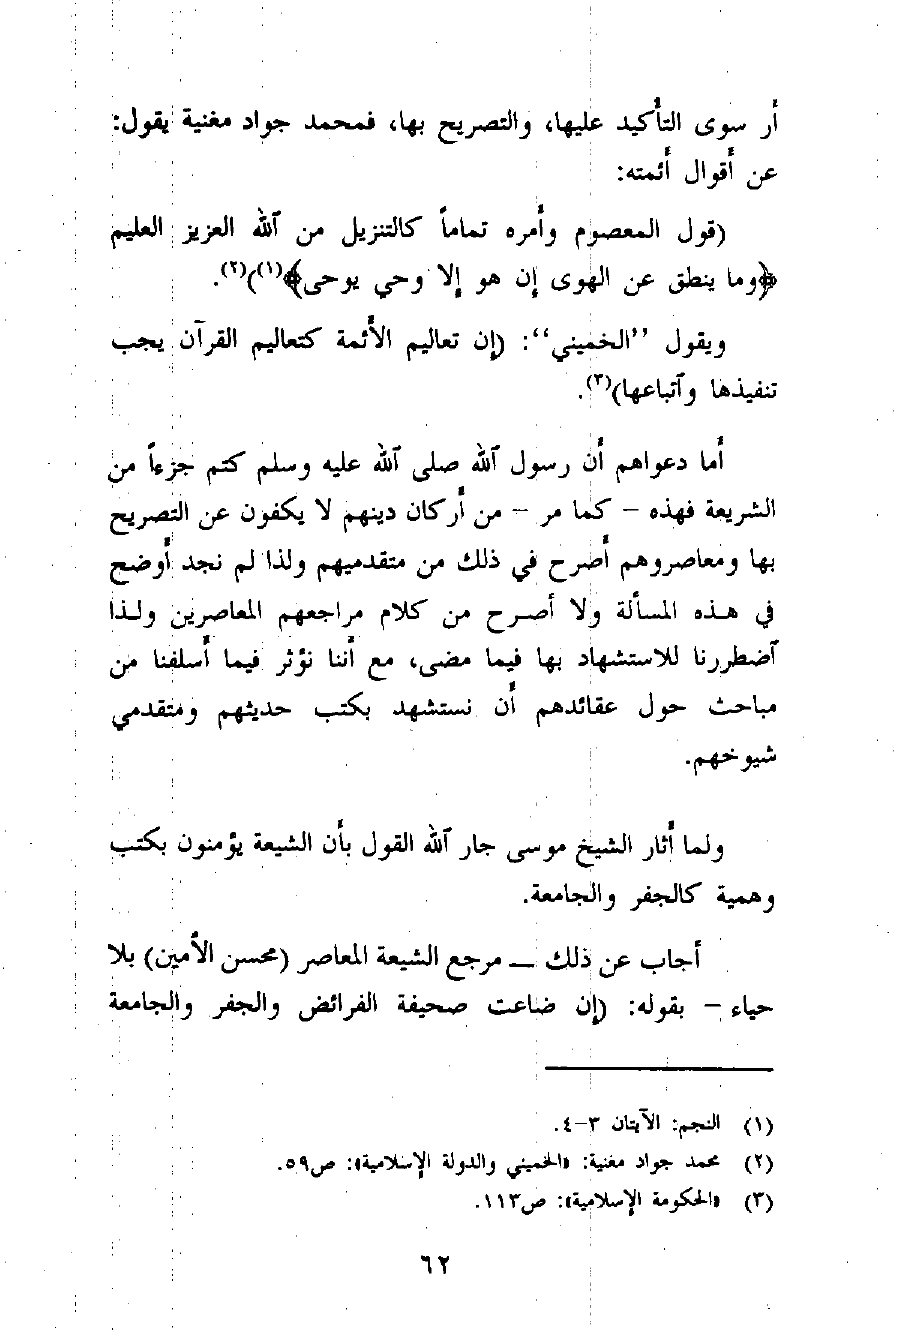 أر سوى التأكيد عليها، والتصريح بها، فمحمد جواد مغنية يقول:
عن أقوال أئمته:
(قول المعصوم وأمره تماماً كالتنزيل من ٱلله العزيز العليم
﴿وما ينطق عن الهوى إن هو إلا وحي يوحى﴾(١))(٢).
ويقول ”الخميني“: (إن تعاليم الأئمة كتعاليم القرآن يجب
تنفيذها وٱتباعها)(٣).
أما دعواهم أن رسول ٱلله صلى ٱلله عليه وسلم كتم جزءاً من
الشريعة فهذه – كما مر – من أركان دينهم لا يكفون عن التصريح
بها ومعاصروهم أصرح في ذلك من متقدميهم ولذا لم نجد أوضح
في هذه المسألة ولا أصرح من كلام مراجعهم المعاصرين ولذا
ٱضطررنا للاستشهاد بها فيما مضى، مع أننا نؤثر فيما أسلفنا من
مباحث حول عقائدهم أن نستشهد بكتب حديثهم ومتقدمي
شيوخهم.
ولما أثار الشيخ موسى جار ٱلله القول بأن الشيعة يؤمنون بكتب
وهمية كالجفر والجامعة.
أجاب عن ذلك — مرجع الشيعة المعاصر (محسن الأمين) بلا
حياء – بقوله: (إن ضاعت صحيفة الفرائض والجفر والجامعة
(١) النجم: الآيتان ٣–٤.
(٢) محمد جواد مغنية: «الخميني والدولة الإسلامية»: ص٥٩.
(٣) «الحكومة الإسلامية»: ص١١٣.
٦٢